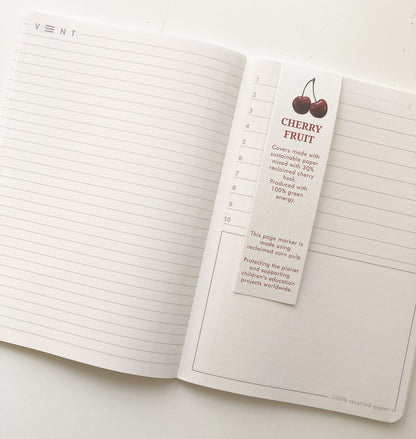 V≡NT
1
2
3
4
5
6
7
8
9
10
CHERRY
FRUIT
Covers made with
sustainable paper
mixed with 30%
reclaimed cherry
husk.
Produced with
100% green
energy
This page marker is
made using
reclaimed corn pulp
Protecting the planet
and supporting
children's education
projects worldwide.
100% recycled paper